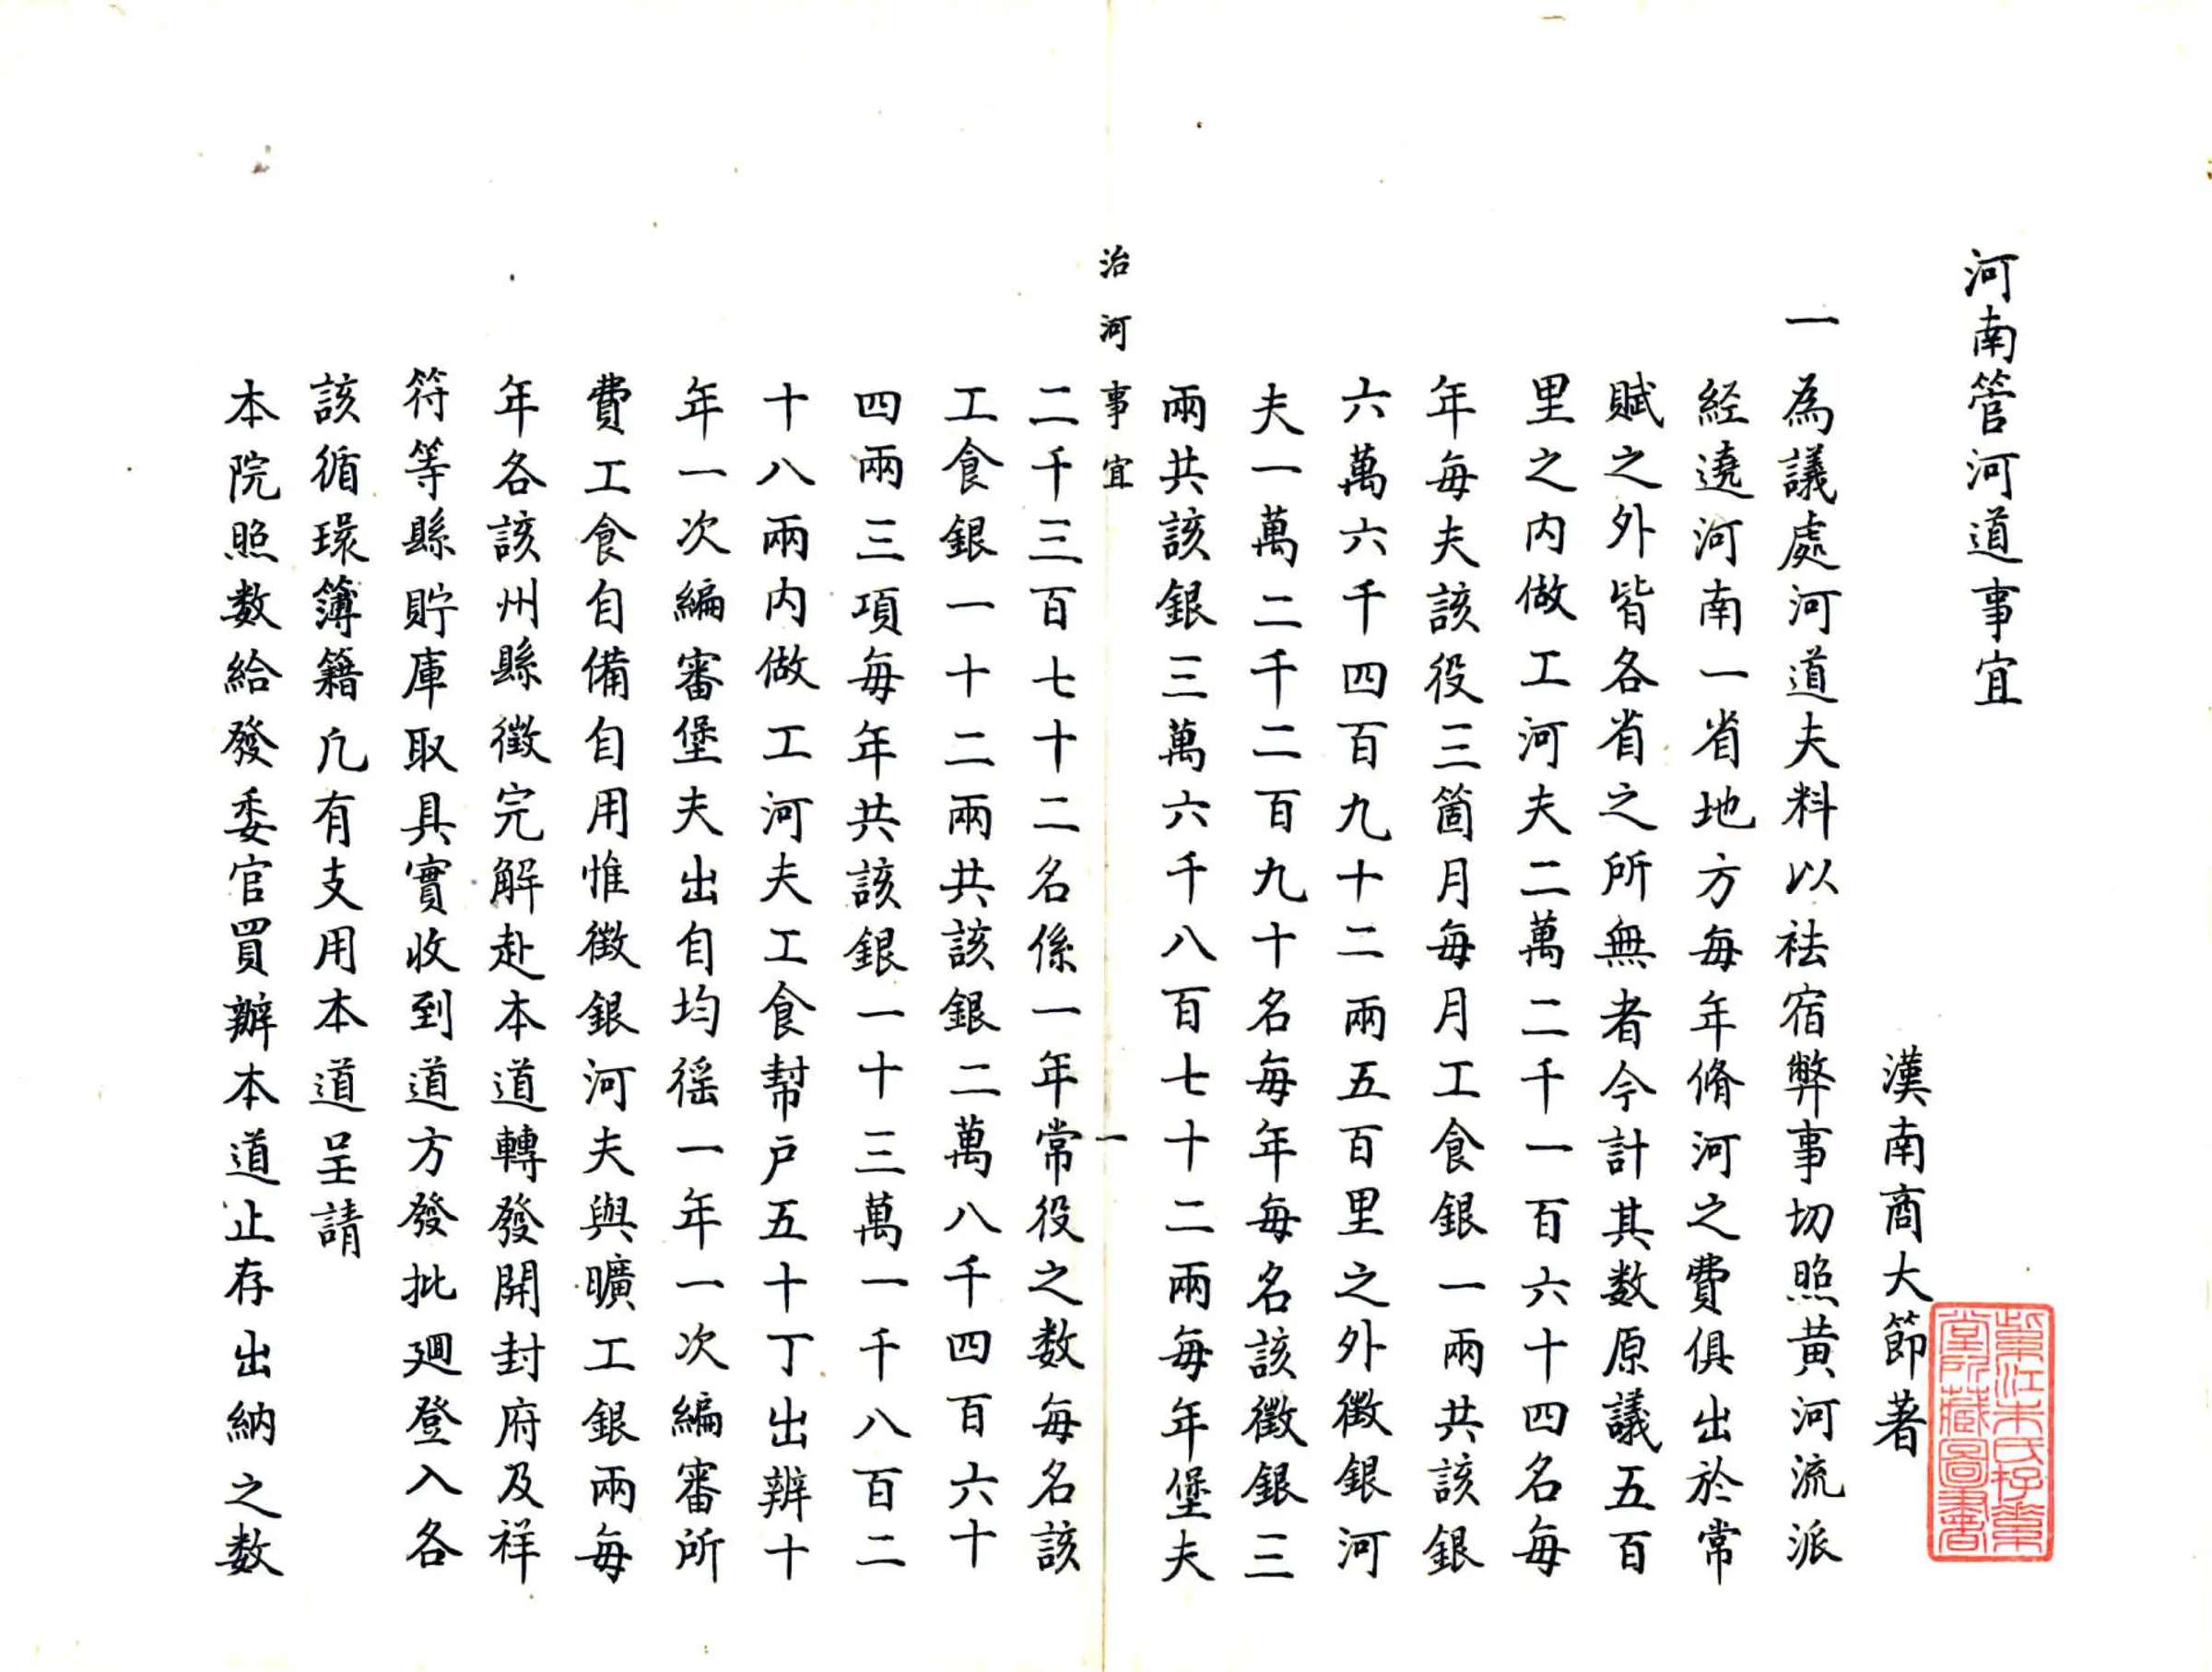 河南管河道事宜
漢南商大節著
一為議處河道夫料以祛宿弊事切照黃河流派
經遶河南一省地方每年脩河之費俱出於常
賦之外皆各省之所無者今計其数原議五百
里之内做工河夫二萬二千一百六十四名每
年每夫該役三箇月每月工食銀一兩共該銀
六萬六千四百九十二兩五百里之外徵銀河
夫一萬二千二百九十名每年每名該徵銀三
兩共該銀三萬六千八百七十二兩每年堡夫
治河事宜 一
二千三百七十二名係一年常役之数每名該
工食銀一十二兩共該銀二萬八千四百六十
四兩三項每年共該銀一十三萬一千八百二
十八兩内做工河夫工食幇户五十丁出辨十
年一次編審堡夫出自均徭一年一次編審所
費工食自備自用惟徵銀河夫與曠工銀兩每
年各該州縣徵完解赴本道轉發開封府及祥
符等縣貯庫取具實收到道方發批廻登入各
該循環簿籍凢有支用本道呈請
本院照数給發委官買辦本道止存出納之数
紫江朱氏存素
堂所藏圖書